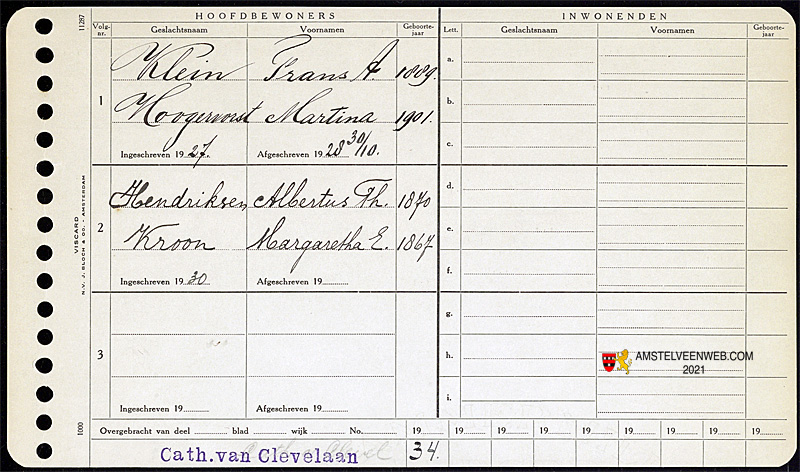 HOOFDBEWONERS
INWONENDEN
11287
Volg-nr.
Geslachtsnaam
Voornamen
Geboorte-jaar
Lett.
Geslachtsnaam
Voornamen
Geboorte-jaar
1
Klein Frans A 1889.
Hoogervorst Martina 1901.
Ingeschreven 1927.
Afgeschreven 1928 30/10.
a.
b.
c.
2
Hendriksen Albertus Th. 1870
Kroon Margaretha E. 1867
Ingeschreven 1930
Afgeschreven 19
d.
e.
f.
3
Ingeschreven 19
Afgeschreven 19
g.
h.
i.
AMSTELVEENWEB.COM
2021
VISCARD
N.V. J. BLOCH & CO. - AMSTERDAM
1000
Overgebracht van deel blad wijk No.
19 19 19 19 19 19 19 19 19
Cath.van Clevelaan 34.